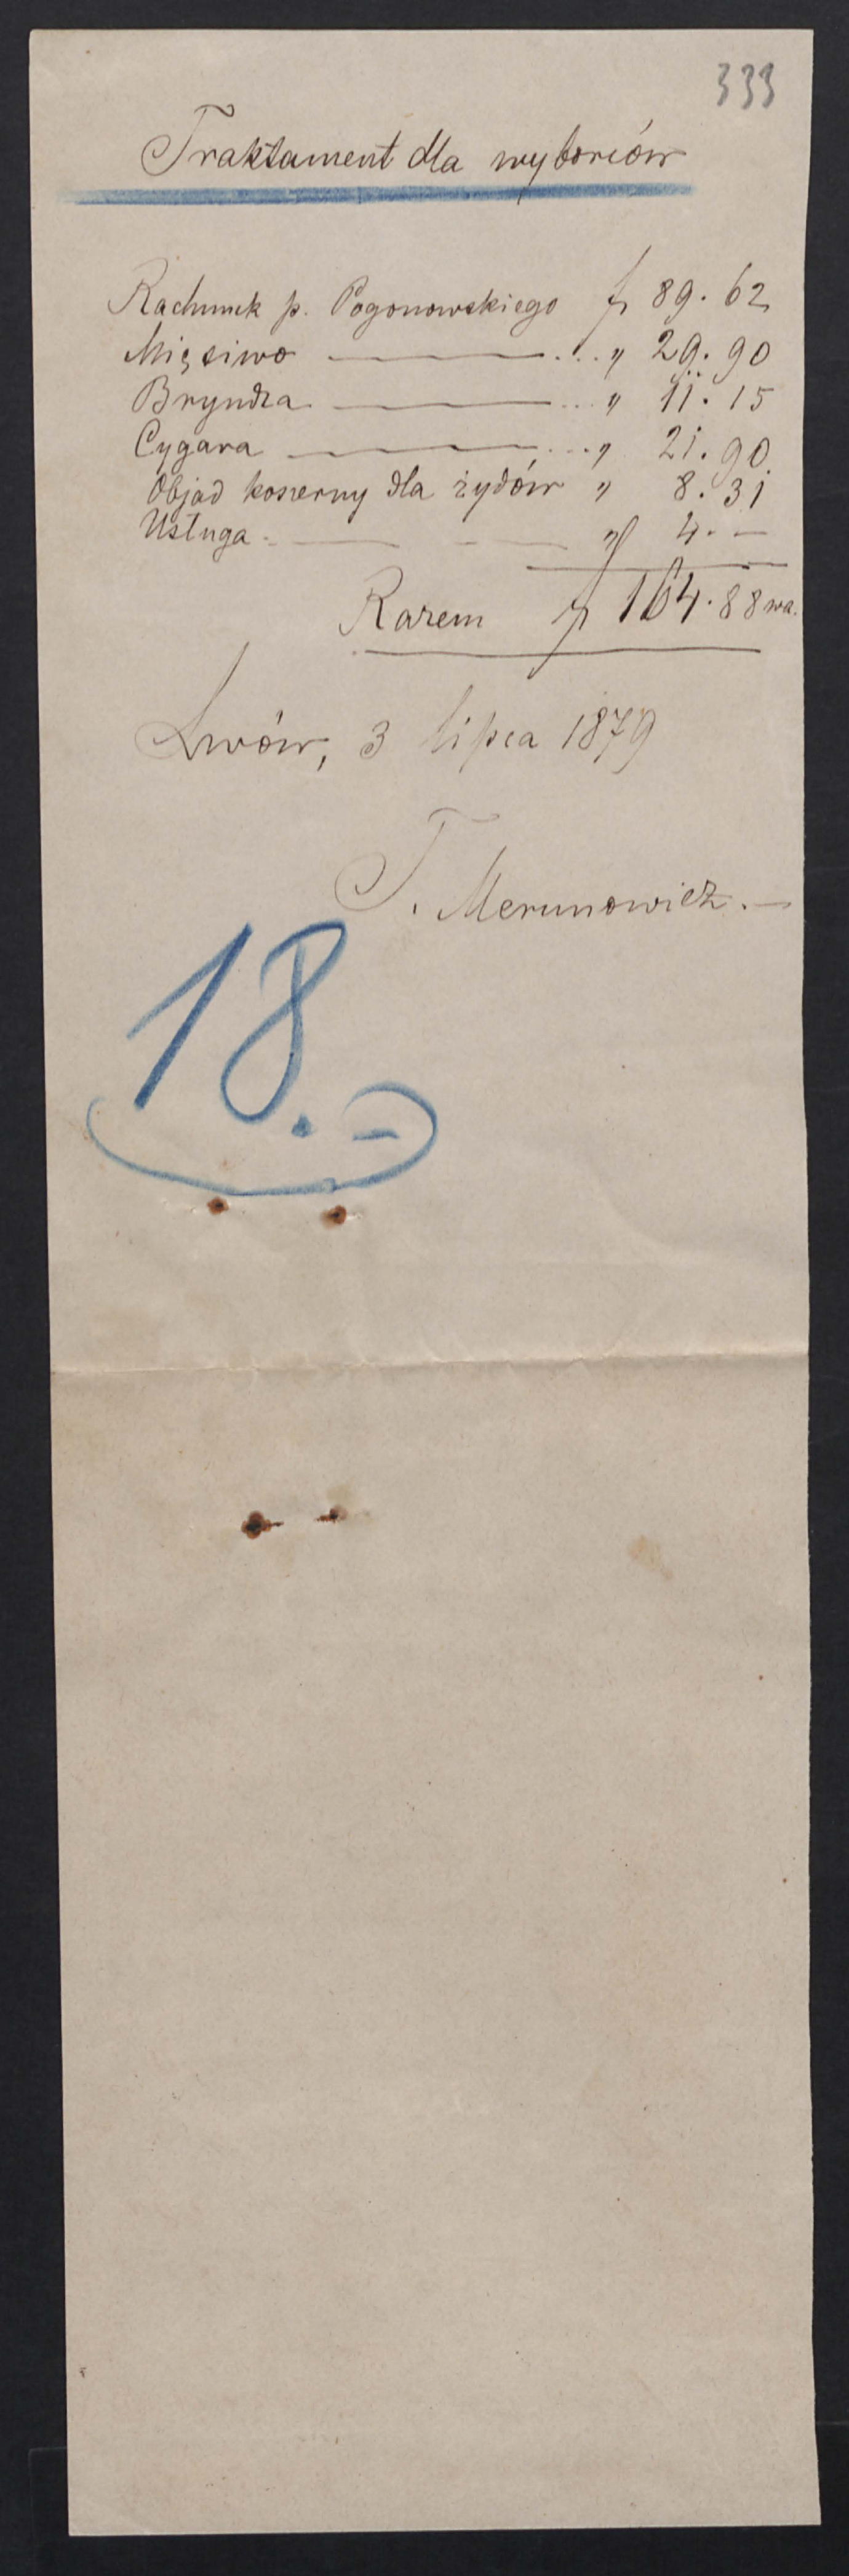 333
Traktament dla wyborców
Rachunek p. Pogonowskiego f 89. 62
Mięsiwo — ... " 29. 90
Bryndza — ... " 11. 15
Cygara — ... " 21. 90
Objad koszerny dla żydów " 8. 31
Usługa - — - — " 4. —
Razem f 164. 88 wa.
Lwów, 3 lipca 1879
T. Merunowicz. —
18. -